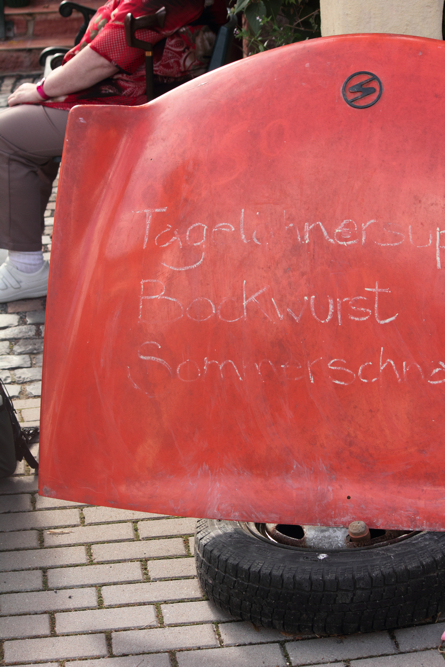 Tagelöhnersup
Bockwurst
Sommerschna